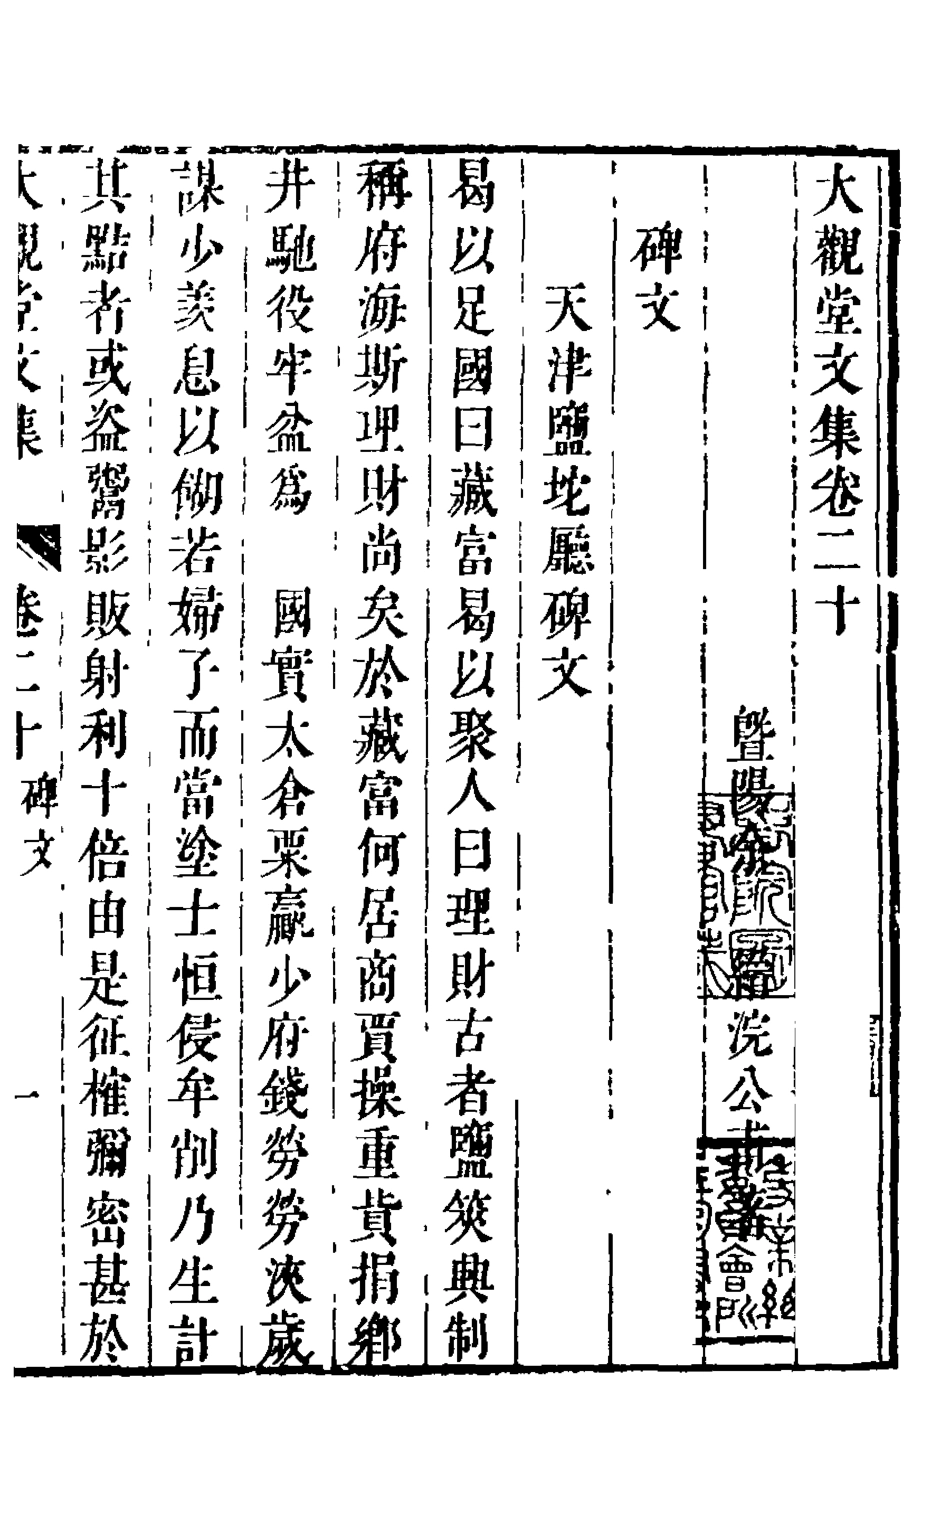 大觀堂文集卷二十
暨陽余 縉浣公甫著
碑文
天津鹽坨廳碑文
曷以足國曰藏富曷以聚人曰理財古者鹽筴典制
稱府海斯理財尚矣於藏富何居商賈操重貲捐鄉
井馳役牢盆爲 國實太倉粟贏少府錢勞勞浹歲
謀少羨息以餬若婦子而當塗士恒侵牟削乃生計
其點者或盗鬻影販射利十倍由是征榷彌密甚於
大觀堂文集 卷二十 碑文 一